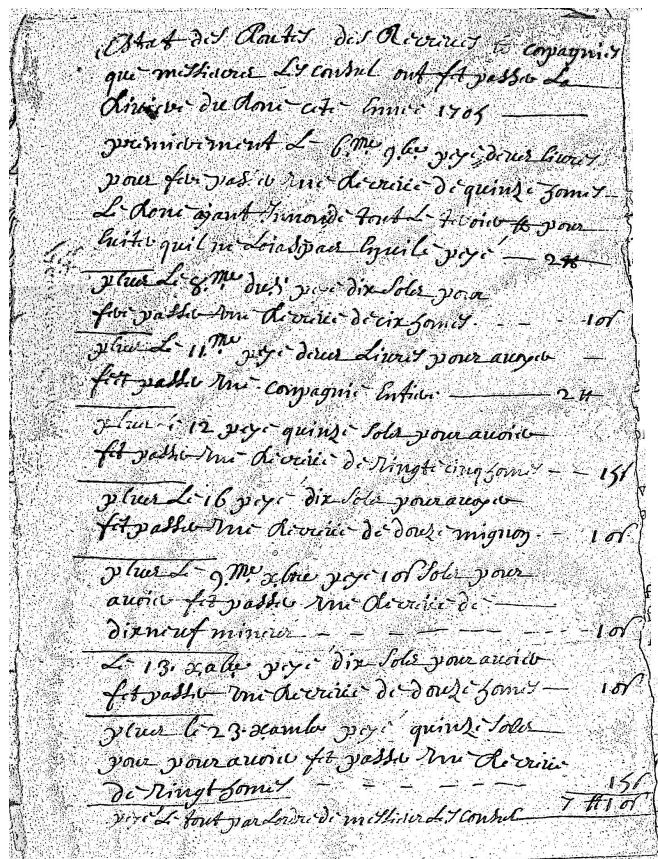 Estat des Routes des Recrues & copagnies
que messieurs Les consul ont fet passer La
Riviere du Rone cete Ennee 1705
premierement Le 6.me 9.bre peyé deux livres
pour fere passer une Recrüe de quinze homes
Le Rone ajant Innonde tout Le pour
quil ne peyé 2#
plus Le 8.me dud.t peyé dix Sols pour
fere passer une Recrüe de dix homes 10s
plus Le 11.me peyé deux Livres pour avoyer
fet passer une conpagnie Entiere 2#
plus le 12 peye quinze Sols pour avoier
fet passer une Recrüe de vingt cinq homes 15s
plus Le 16 peyé dix Sols pour avoyer
fet passer une Recrüe de douze mignon 10s
plus Le 9.me xbre peye 10s Sols pour
avoier fet passer une Recrüe de
dixneuf mineur 10s
Le 13. xabre peyé dix Sols pour avoier
fet passer une Recrüe de douze homes 10s
plus le 23 xambre peyé quinze Sols
pour pour avoier fet passer une Recrüe
de vingt homes 15s
7#10s
peyé Le tout par Lordre de messieur Les consul